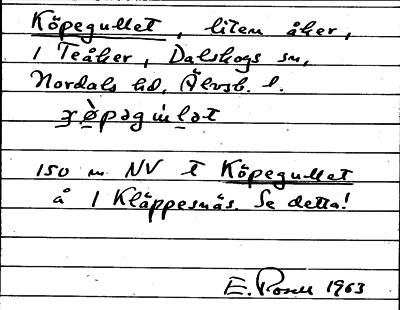 Köpegullet, liten åker,
1 Teåker, Dalskogs sn,
Nordals hd, Älvsb. l.
150 m NV t Köpegullet
å 1 Kläppesnäs. Se detta!
E. Rosell 1963